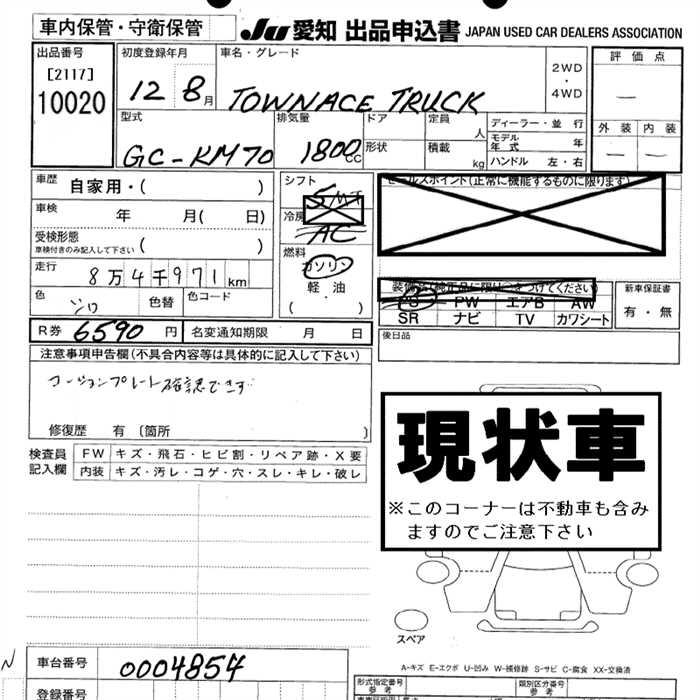 車内保管・守衛保管
JU 愛知 出品申込書 JAPAN USED CAR DEALERS ASSOCIATION
出品番号
[2117]
10020
初度登録年月
12 8月
車名・グレード
TOWNACE TRUCK
2WD
・
4WD
評価点
—
外装 内装
— —
型式
GC-KM70
排気量
1800cc
ドア
形状
定員
人
積載
kg
ディーラー・並行
モデル年式 年
ハンドル 左・右
車歴 自家用・( )
車検 年 月( 日)
受検形態
車検付きのみ記入して下さい ( )
走行
8万4千971km
色 シロ 色替 色コード
シフト
5 MT
冷房
AC
燃料
ガソリン
軽油
( )
セールスポイント(正常に機能するものに限ります)
装備品(純正品に限り○をつけてください)
PS PW エアB AW
SR ナビ TV カワシート
新車保証書
有・無
R券 6590円 名変通知期限 月 日
後日品
注意事項申告欄(不具合内容等は具体的に記入して下さい)
コーションプレート確認できず
修復歴 有〔箇所 〕
検査員記入欄
FW キズ・飛石・ヒビ割・リペア跡・X要
内装 キズ・汚レ・コゲ・穴・スレ・キレ・破レ
現状車
※このコーナーは不動車も含み
ますのでご注意下さい
スペア
A-キズ E-エクボ U-凹み W-補修跡 S-サビ C-腐食 XX-交換済
N
車台番号 0004854
登録番号
形式指定番号
参考
類別区分番号
参考